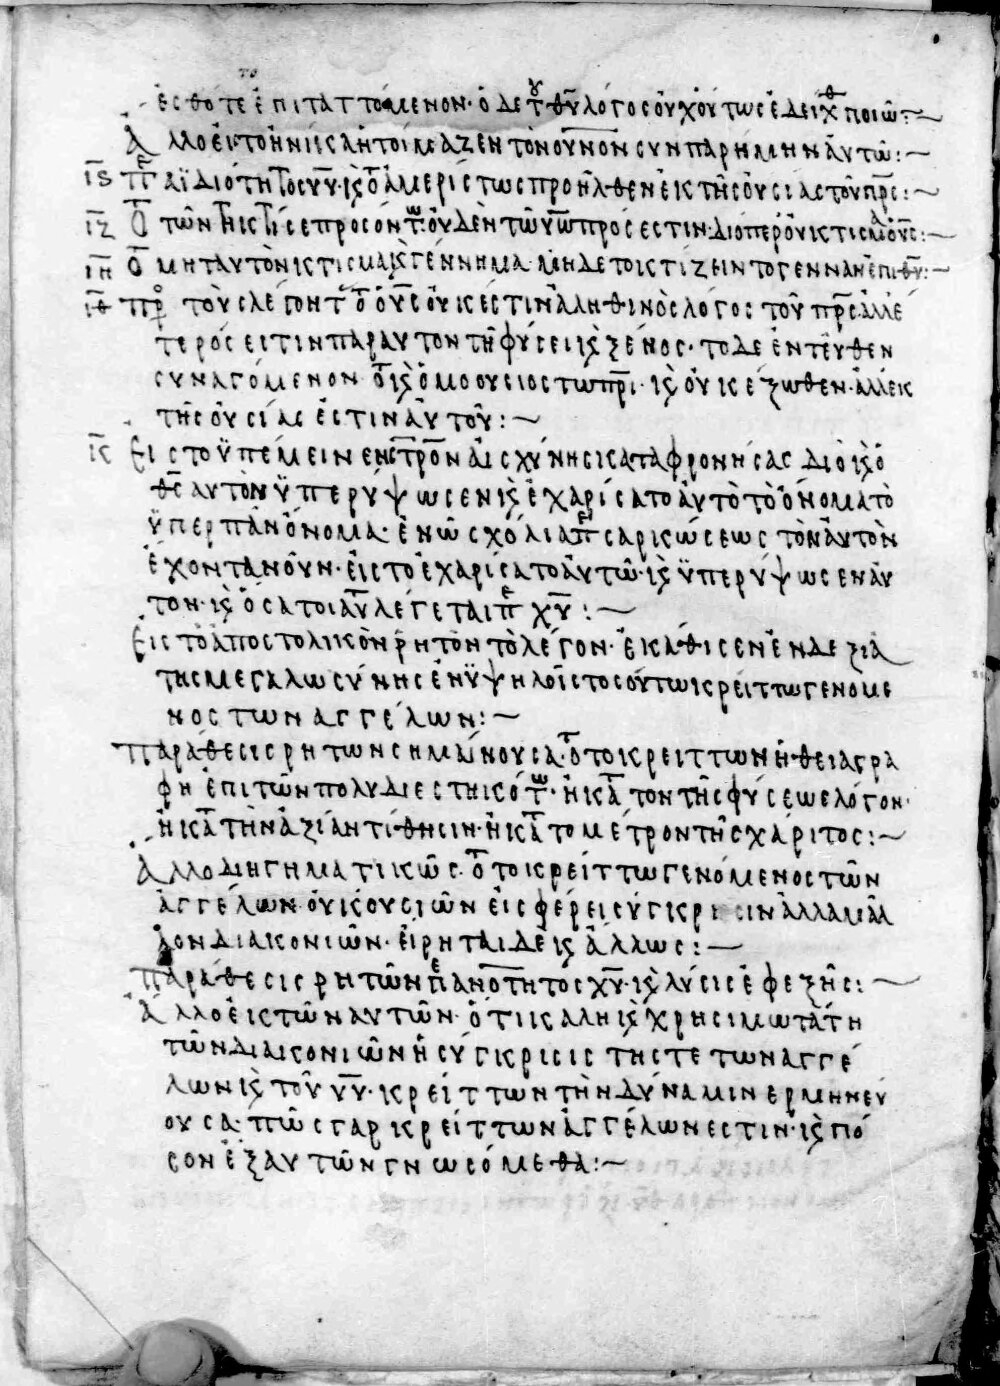 ἐσθότε ἐπιταττόμενον· ὁ δὲ τοῦ θυ λόγος οὐχ οὕτως ἐδείχθ ποιῶ:~
Ἄλλο ἐκ τὸν νοῦν ὃν συνπαρήμην αὐτῶ:~
ιϛ πε ἀϊδιότητος υυ· κ ὅτ ἀμερίστως προῆλθεν ἐκ τῆς οὐσίας τοῦ πρς:~
ιζ Ὅτ τῶν κτισ προσόντ οὐδὲν τῶ υω πρόσεστιν· διόπερ οὐ κτίσμα ὁ υς:~
ιη Ὅτ μὴ ταυτὸν κτίσμα κ γέννημα· μηδὲ τὸ κτίζειν τὸ γεννᾶν ἐπὶ θυ:~
ιθ πρ τοὺς λέγοντ ὅτ ὁ υς οὐκ ἐστιν ἀληθινὸς λόγος τοῦ πρς ἀλλ' ἕ
τερός ἐστιν παρ αυτον τῆ φύσει κ ξένος· τὸ δὲ ἐντεῦθεν
συναγόμενον ὅτ κ ὁμοούσιος τῶ πρι· κ οὐκ ἔξωθεν· ἀλλ' ἐκ
τῆς οὐσίας ἐστὶν αὐτοῦ:~
κ Εἰς τὸ ὑπέμεινεν στρον αἰσχύνης καταφρονήσας διὸ κ ὁ
θς αυτὸν ὑπερύψωσεν κ ἐχαρίσατο αὐτὸ τὸ ὄνομα τὸ
ὑπερ πᾶν ὄνομα· ἐν ῶ σχόλια πε σαρκώσεως τὸν αυτὸν
ἔχοντα νοῦν· εἰς τὸ ἐχαρίσατο αὐτῶ· κ ὑπερύψωσεν αυ
τον· κ ὅσα τοιαῦ λέγεται πε χυ:~
Εἰς τὸ ἀποστολικὸν ῥητὸν τὸ λέγον· ἐκάθισεν ἐν δεξιᾶ
της μεγαλωσύνης ἐν ὑψηλοῖς τοσούτω κρείττω γενόμε
νος των ἀγγέλων:~
Παράθεσις ρητων σημαίνουσα· ὅτ τὸ κρειττων ἡ θεία γρα
φη ἐπι τῶν πολὺ διεστηκότ· ἢ κατ τον τῆς φύσεως λόγον·
ἢ κατ τὴν ἀξίαν τίθησιν· ἢ κατ το μέτρον τῆς χάριτος:~
Ἄλλο διηγηματικῶς· ὅτ τὸ κρείττω γενόμενος τῶν
ἀγγέλων· οὐκ οὐσιῶν εἰσφέρει σύγκρισιν ἀλλα μᾶλ
λον διακονιῶν· εἴρηται δὲ κ ἄλλως:~
Παράθεσις ρητῶν πε ανοτητος χυ· κ λύσις ἐφεξῆς:~
Ἄλλο εἰς τῶν αυτῶν· ὅτι καλη κ χρησιμωτάτη
τῶν διακονιῶν ἡ σύγκρισις τῆς τε των ἀγγέ
λων κ τοῦ υυ· κρείττων τὴν δύναμιν ερμηνεύ
ουσα· πῶς γαρ κρείττων ἀγγέλων εστιν· κ πό
σον ἐξ αυτῶν γνωσόμεθα:~